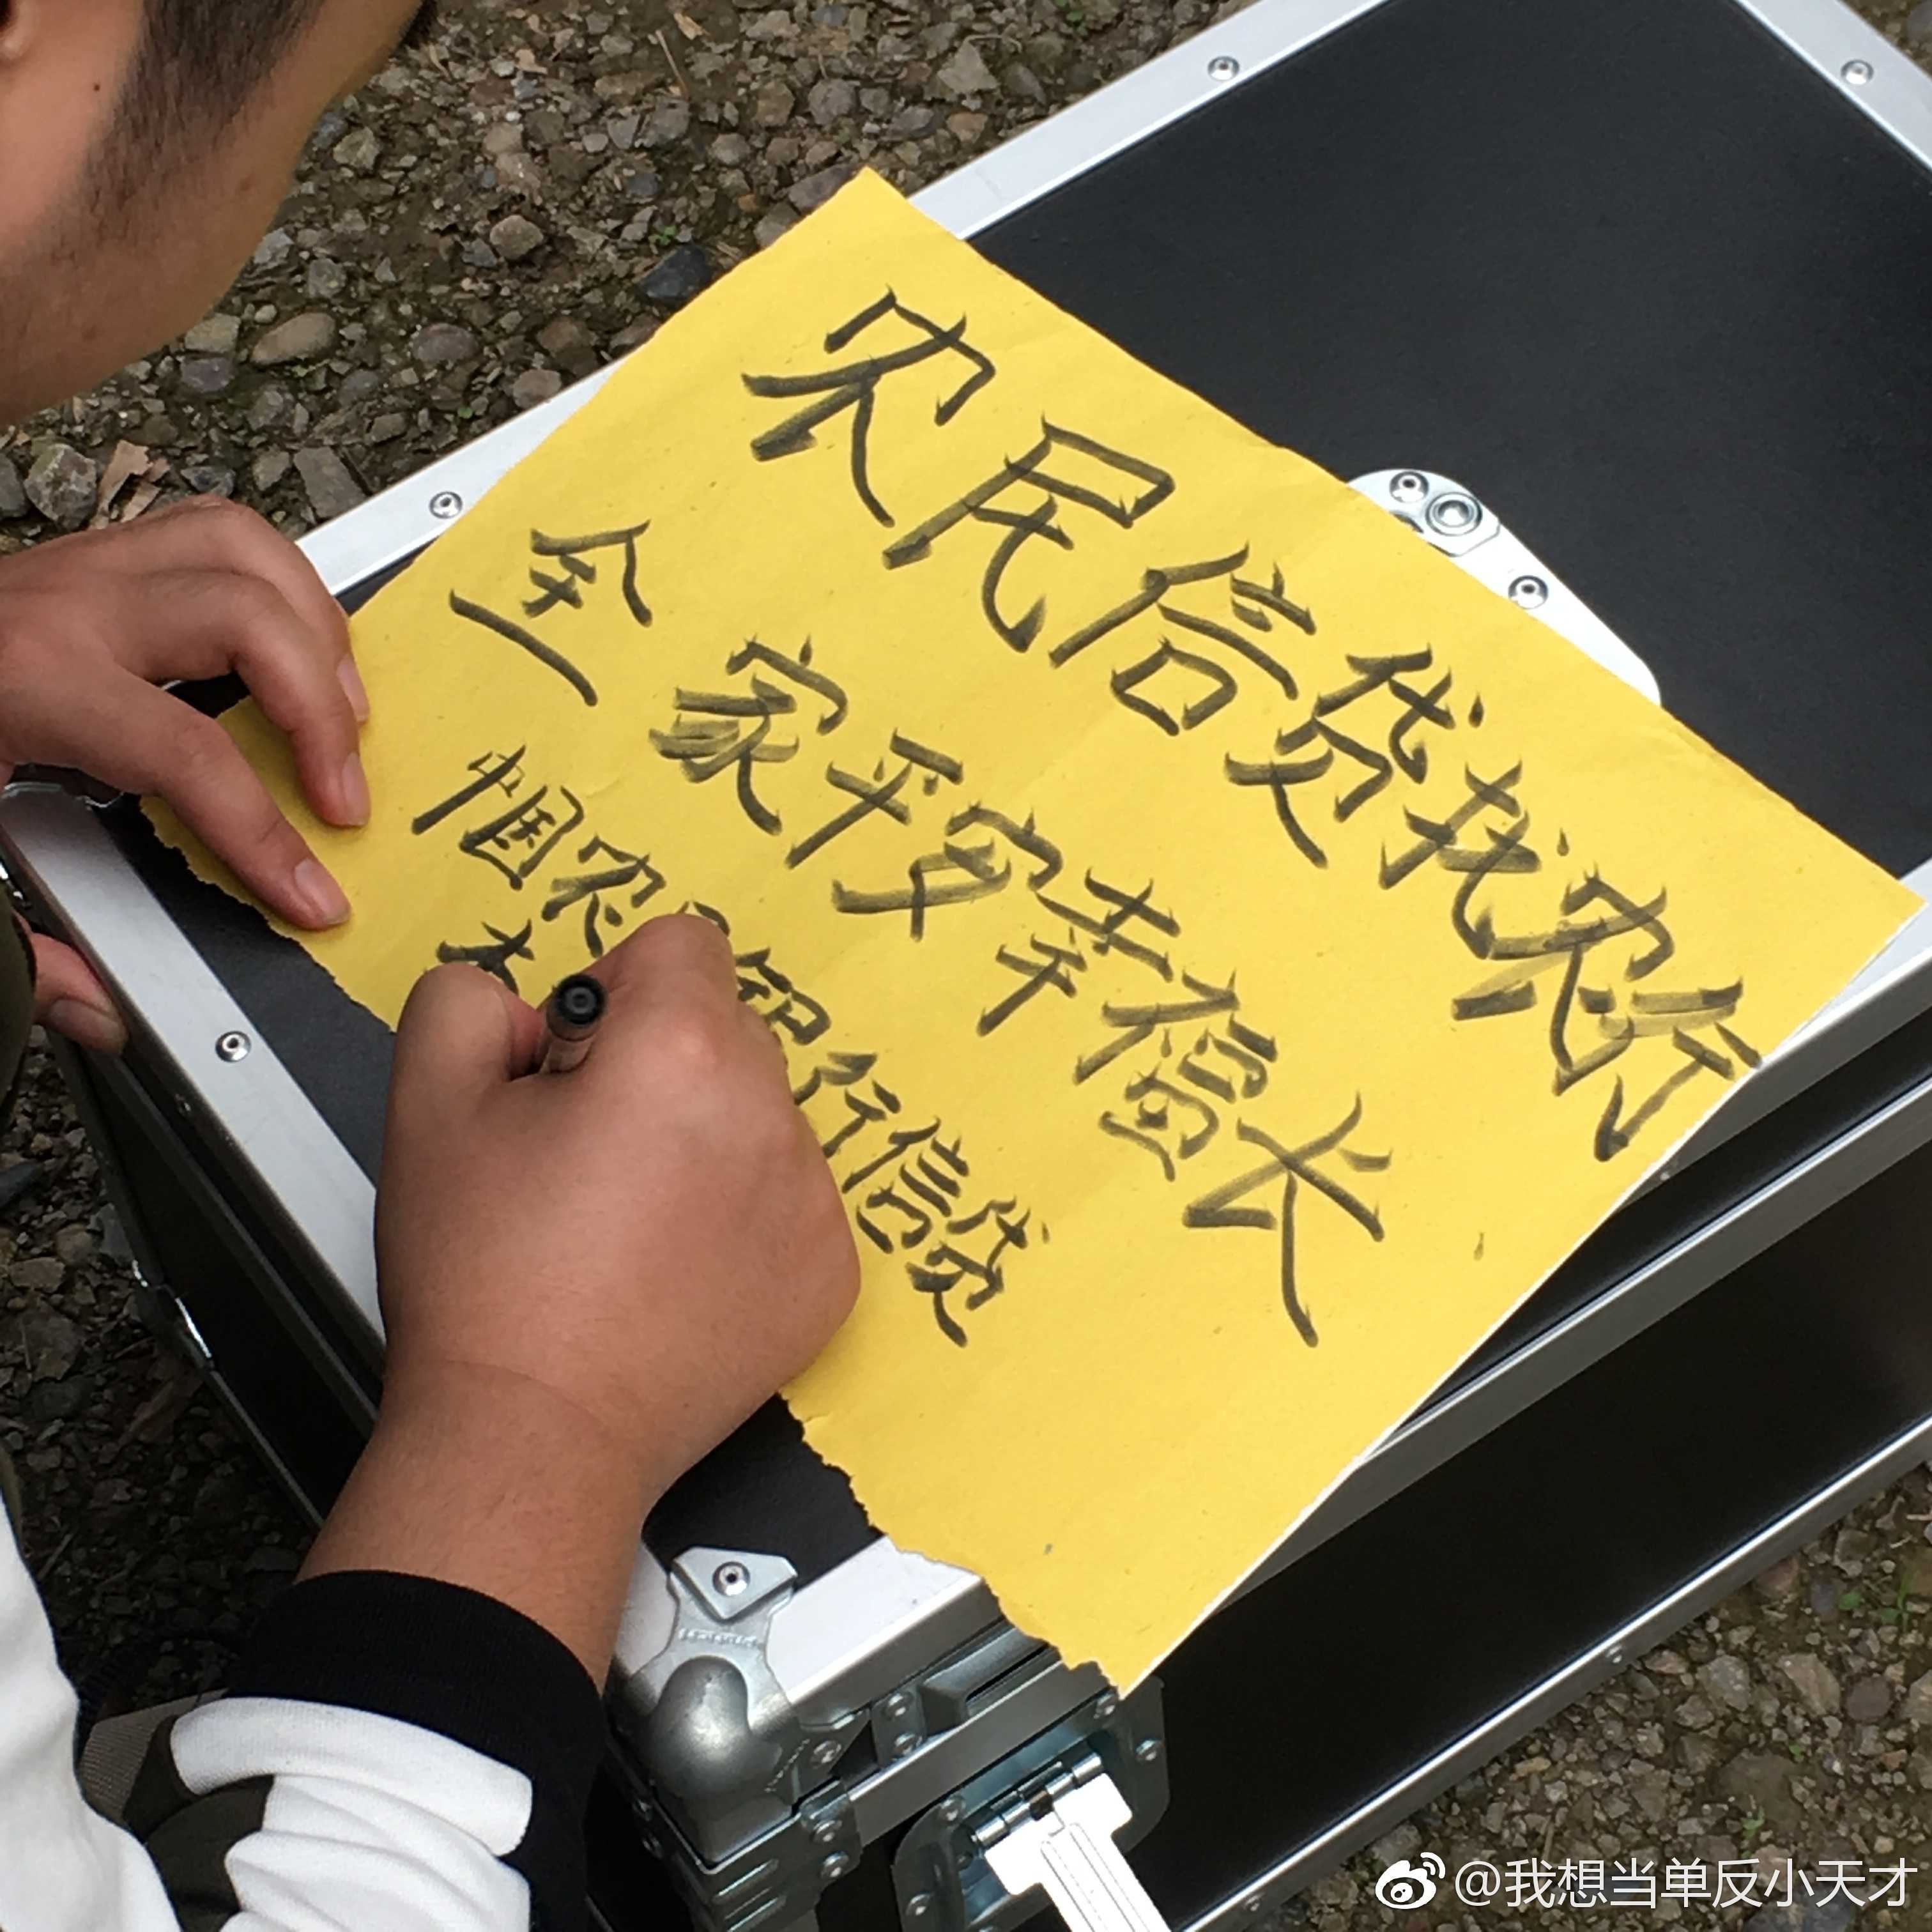 农民信贷找农行
全家平安幸福长
中国农民银行信贷
@我想当单反小天才